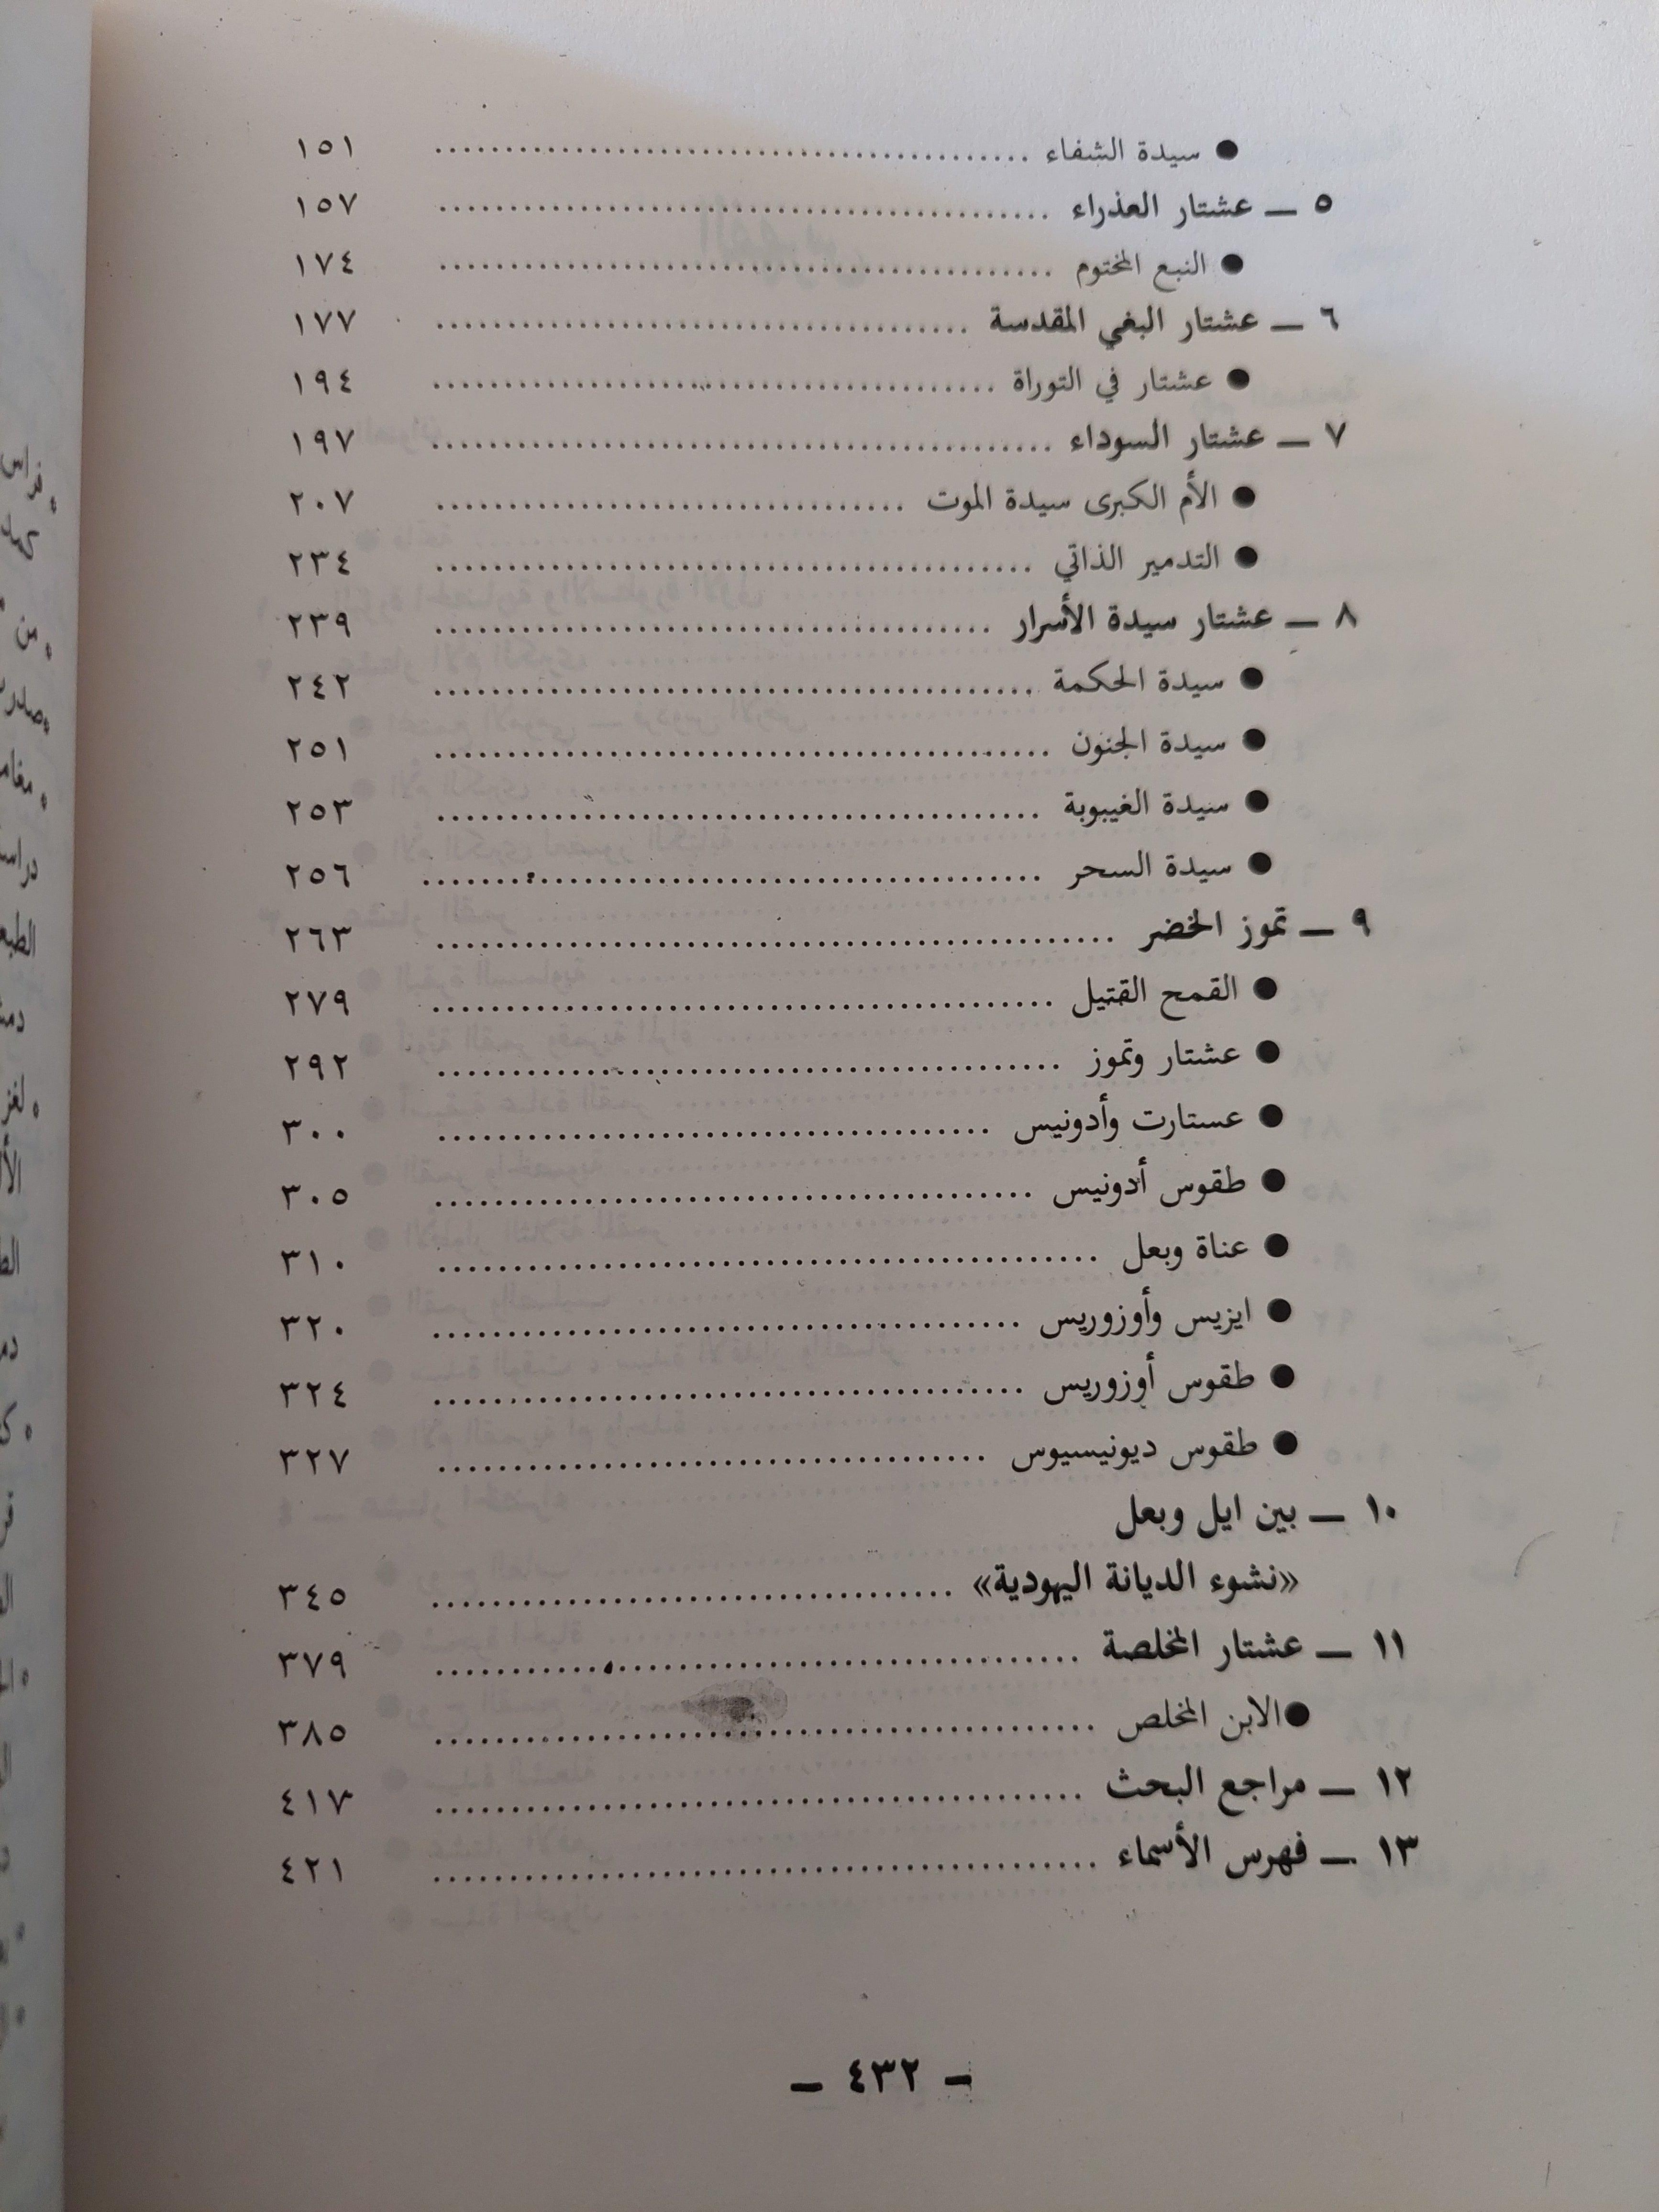 ● سيدة الشفاء ........ ١٥١
٥ ــ عشتار العذراء ........ ١٥٧
● النبع المختوم ........ ١٧٤
٦ ــ عشتار البغي المقدسة ........ ١٧٧
● عشتار في التوراة ........ ١٩٤
٧ ــ عشتار السوداء ........ ١٩٧
● الأم الكبرى سيدة الموت ........ ٢٠٧
● التدمير الذاتي ........ ٢٣٤
٨ ــ عشتار سيدة الأسرار ........ ٢٣٩
● سيدة الحكمة ........ ٢٤٢
● سيدة الجنون ........ ٢٥١
● سيدة الغيبوبة ........ ٢٥٣
● سيدة السحر ........ ٢٥٦
٩ ــ تموز الخضر ........ ٢٦٣
● القمح القتيل ........ ٢٧٩
● عشتار وتموز ........ ٢٩٢
● عستارت وأدونيس ........ ٣٠٠
● طقوس أدونيس ........ ٣٠٥
● عناة وبعل ........ ٣١٠
● ايزيس وأوزوريس ........ ٣٢٠
● طقوس أوزوريس ........ ٣٢٤
● طقوس ديونيسيوس ........ ٣٢٧
١٠ ــ بين ايل وبعل
«نشوء الديانة اليهودية» ........ ٣٤٥
١١ ــ عشتار المخلصة ........ ٣٧٩
● الابن المخلص ........ ٣٨٥
١٢ ــ مراجع البحث ........ ٤١٧
١٣ ــ فهرس الأسماء ........ ٤٢١
ــ ٤٣٢ ــ